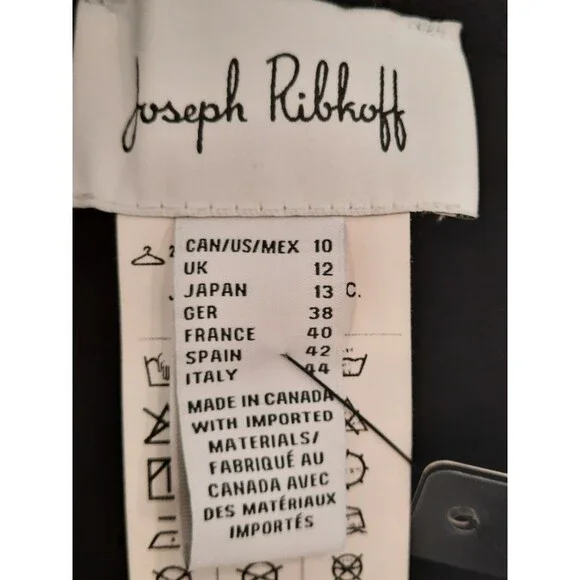 Joseph Ribkoff
CAN/US/MEX 10
UK 12
JAPAN 13
GER 38
FRANCE 40
SPAIN 42
ITALY 44
C.
MADE IN CANADA
WITH IMPORTED
MATERIALS/
FABRIQUÉ AU
CANADA AVEC
DES MATÉRIAUX
IMPORTÉS